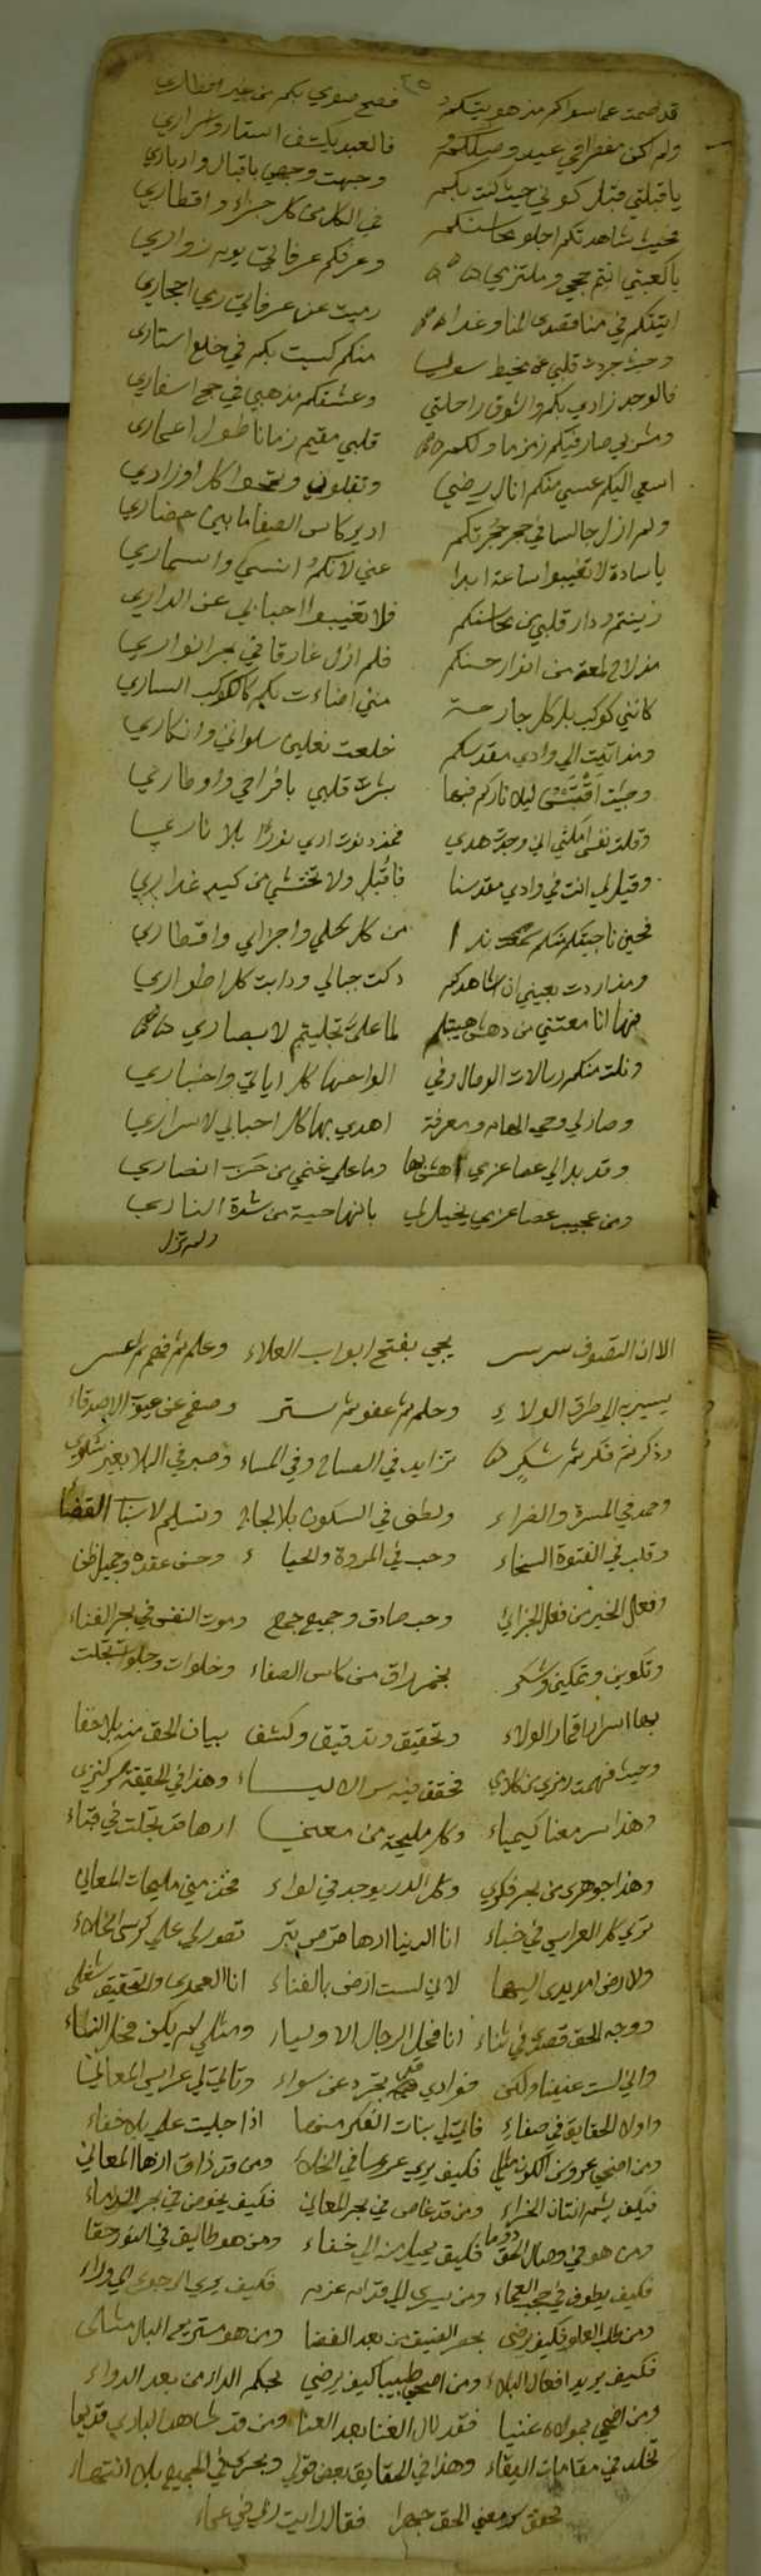 قد صمت عما سواكم مذ هويتكم فصح صومي بكم من غير افطاري
ولم اكن مفطرا في عيد وصلكم فالعبد يكشف استار واسراري
يا قبلتي قبل كوني حيث كنت بكم وجهت وجهي باقبال وادباري
بحيث شاهدتكم اجلو محاسنكم في الكل من كل جزاء واقطاري
يا كعبتي انتم حجي وملتزمي وعرفكم عرفاتي يوم زواري
اتيتكم في منا قصدي المنا وغدا رميت عن عرفاتي رمي احجاري
وحيث جردت قلبي عن مخيط سوي منكم كسيت بكم في خلع استاري
فالوجد زادي بكم والشوق راحلتي وعشقكم مذهبي في حج اسفاري
ومشربي صار فيكم زمزما ولكم قلبي مقيم زمانا طول اعماري
اسعي اليكم عسي منكم انال رضي وتقبلون وتمحوا كل اوزاري
ولم ازل جالسا في حجر حجرتكم ادير كاس الصفا ما بين حضاري
يا سادة لا تغيبوا ساعة ابدا عني لانكم انسي واسماري
زينتم دار قلبي من محاسنكم فلا تغيبوا احبابي عن الداري
مذ لاح لمعة من انوار حسنكم فلم ازل غارقا في بحر انواري
كانني كوكب بل كل جارحة مني اضاءت بكم كالكوكب الساري
ومذ اتيت الي وادي مقدسكم خلعت نعلين سلواني وانكاري
وجيت اقتبس ليلا ناركم فبها بشرت قلبي بافراحي واوطاري
وقلت نفسي امكثي اني وجدت هدي فمذ دنوت اري نورا بلا ناري
وقيل لي انت في وادي مقدسنا فاقبل ولا تختشي من كيد غداري
فحين ناجيتكم منكم سمعت ندا من كل كلي واجزائي واقطاري
ومذ اردت بعيني ان اشاهدكم دكت جبالي ودابت كل اطواري
فها انا معتني من دهش هيبتكم لما علي تجليتم لابصاري
ونلت منكم رسالات الوصال وفي الواحها كل اياتي واخباري
وصار لي وحي الهام ومعرفة اهدي بها كل احبابي لاسراري
وقد بدا لي عصا عزمي اهش بها وما علي غنمي من انصاري
ومن عجيب عصا عزمي يخيل لي بانها حية من شدة الناري
ولم تزل
الا ان التصوف سر سر يجي بفتح ابواب العلاء وعلم ثم فهم ثم
يسير الي طرق الولاء وحلم ثم عفو ثم ستر وصفح عن عيوب الاصدقاء
وذكر ثم فكر ثم شكر تزايد في الصباح وفي المساء وصبر في البلا بغير شكوي
وحمد في المسرة والضراء ولطف في السكون بلا لجاج وتسليم لاسباب القضا
وقلب في الفتوة السخاء وحب في المروة والحياء وحسن عقده وجميل ظن
وفعل الخير من فعل الجزائي وحب صادق وجميع جمع وموت النفس في بحر الفناء
وتكوين وتمكين وسكر بخمر راق من كاس الصفاء وخلوات وجلوات تجلت
بها اسرار اقمار الولاء وتحقيق وتدقيق وكشف بيان الحق منه بلا خفا
وحيث فهمت رمزي من كلامي فحقق فيه سر الالياء وهذا في الحقيقة سر كنزي
وهذا سر معنا كيمياء وكل مليحة من معني ارها قد تجلت في قباء
وهذا جوهري من بحر فكري وكل الدر يوجد في لواء فخذ مني مليحات المعاني
تري كل العرايس في خباء انا الدنيا ارها تصور لي علي كرسي الخلاء
ولا ارضي امد يدي اليها لاني لست ارضي بالفناء انا العمدي والتحقيق شغلي
ووجه الحق قصدي في ثناء انا فحل الرجال الاوليا ومثلي لم يكن فحل النساء
واني لست عنينا ولكن فوادي قد تجرد عن سواء وتاتي لي عرايس المعاني
واولاد الحقايق في صفاء فاتي لي بنات الفكر منها اذا جليت علي بلا خفاء
ومن اضحي عروس الكون فكيف يري عروسا في الخلاء ومن قد ذاق المعاني
فكيف يشم انتان الخراء ومن قد غاص في بحر المعاني فكيف يخوض في بحر الدماء
ومن هو في وصال الحق دوما فكيف يميل منه الي خفاء ومن هو طايف في النور حقا
فكيف يطوف في حجب العماء ومن يسري الي اقدام عزم فكيف يري الرجوع الي وراء
ومن طلب العلو فكيف يرضي بحصر الضيق من بعد الفضا ومن هو مستريح البال مثلي
فكيف يريد افعال البلاء ومن اضحي طبيبا كيف يرضي بحكم الداء من بعد الدواء
ومن اضحي بمولاه غنيا فقد نال الغنا بعد العنا ومن قد شاهد الباري قديما
تخلد في مقامات البقاء وهذا في الحقايق بعض قولي وبحري في الجميع بلا انتهاء
تحقق معني الحق جهرا فقال رايت ربي في عماء